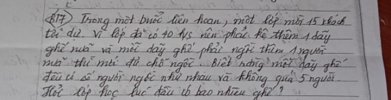 B17) Trong một buổi liên hoan, một lớp mời 15 khách
tới dự. Vì lớp đã có 40 h/s nên phải kê thêm 1 dãy
ghế nữa và mỗi dãy ghế phải ngồi thêm 1 người
nữa thì mới đủ chỗ ngồi. Biết rằng mỗi dãy ghế
đều có số người ngồi như nhau và không quá 5 người.
Hỏi lớp học lúc đầu có bao nhiêu ghế?